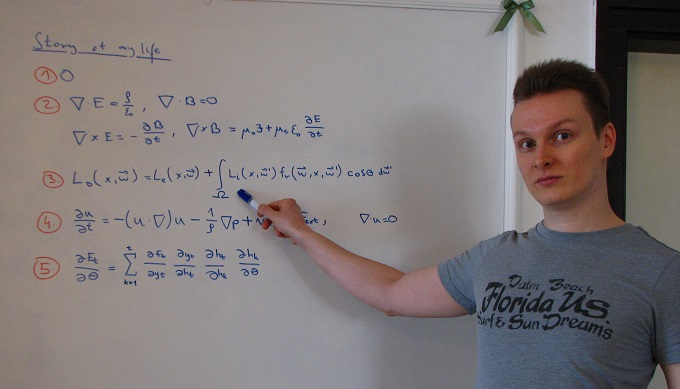 Story of my life
1. 0
2. ∇·E = ρ/ε₀, ∇·B=0
∇×E = -∂B/∂t, ∇×B = μ₀J+μ₀ε₀ ∂E/∂t
3. L₀(x,w⃗)=Lₑ(x,w⃗) + ∫Ω Lᵢ(x,w⃗') fᵣ(w⃗,x,w⃗') cosθ dw⃗'
4. ∂u/∂t = -(u·∇)u - 1/ρ ∇p + ext, ∇u=0
5. ∂Eₜ/∂θ = ∑ᵗₖ₌₁ ∂Eₜ/∂yₜ ∂yₜ/∂hₜ ∂hₜ/∂hₖ ∂hₖ/∂θ
Palm Beach
Florida Us.
Surf & Sun Dreams